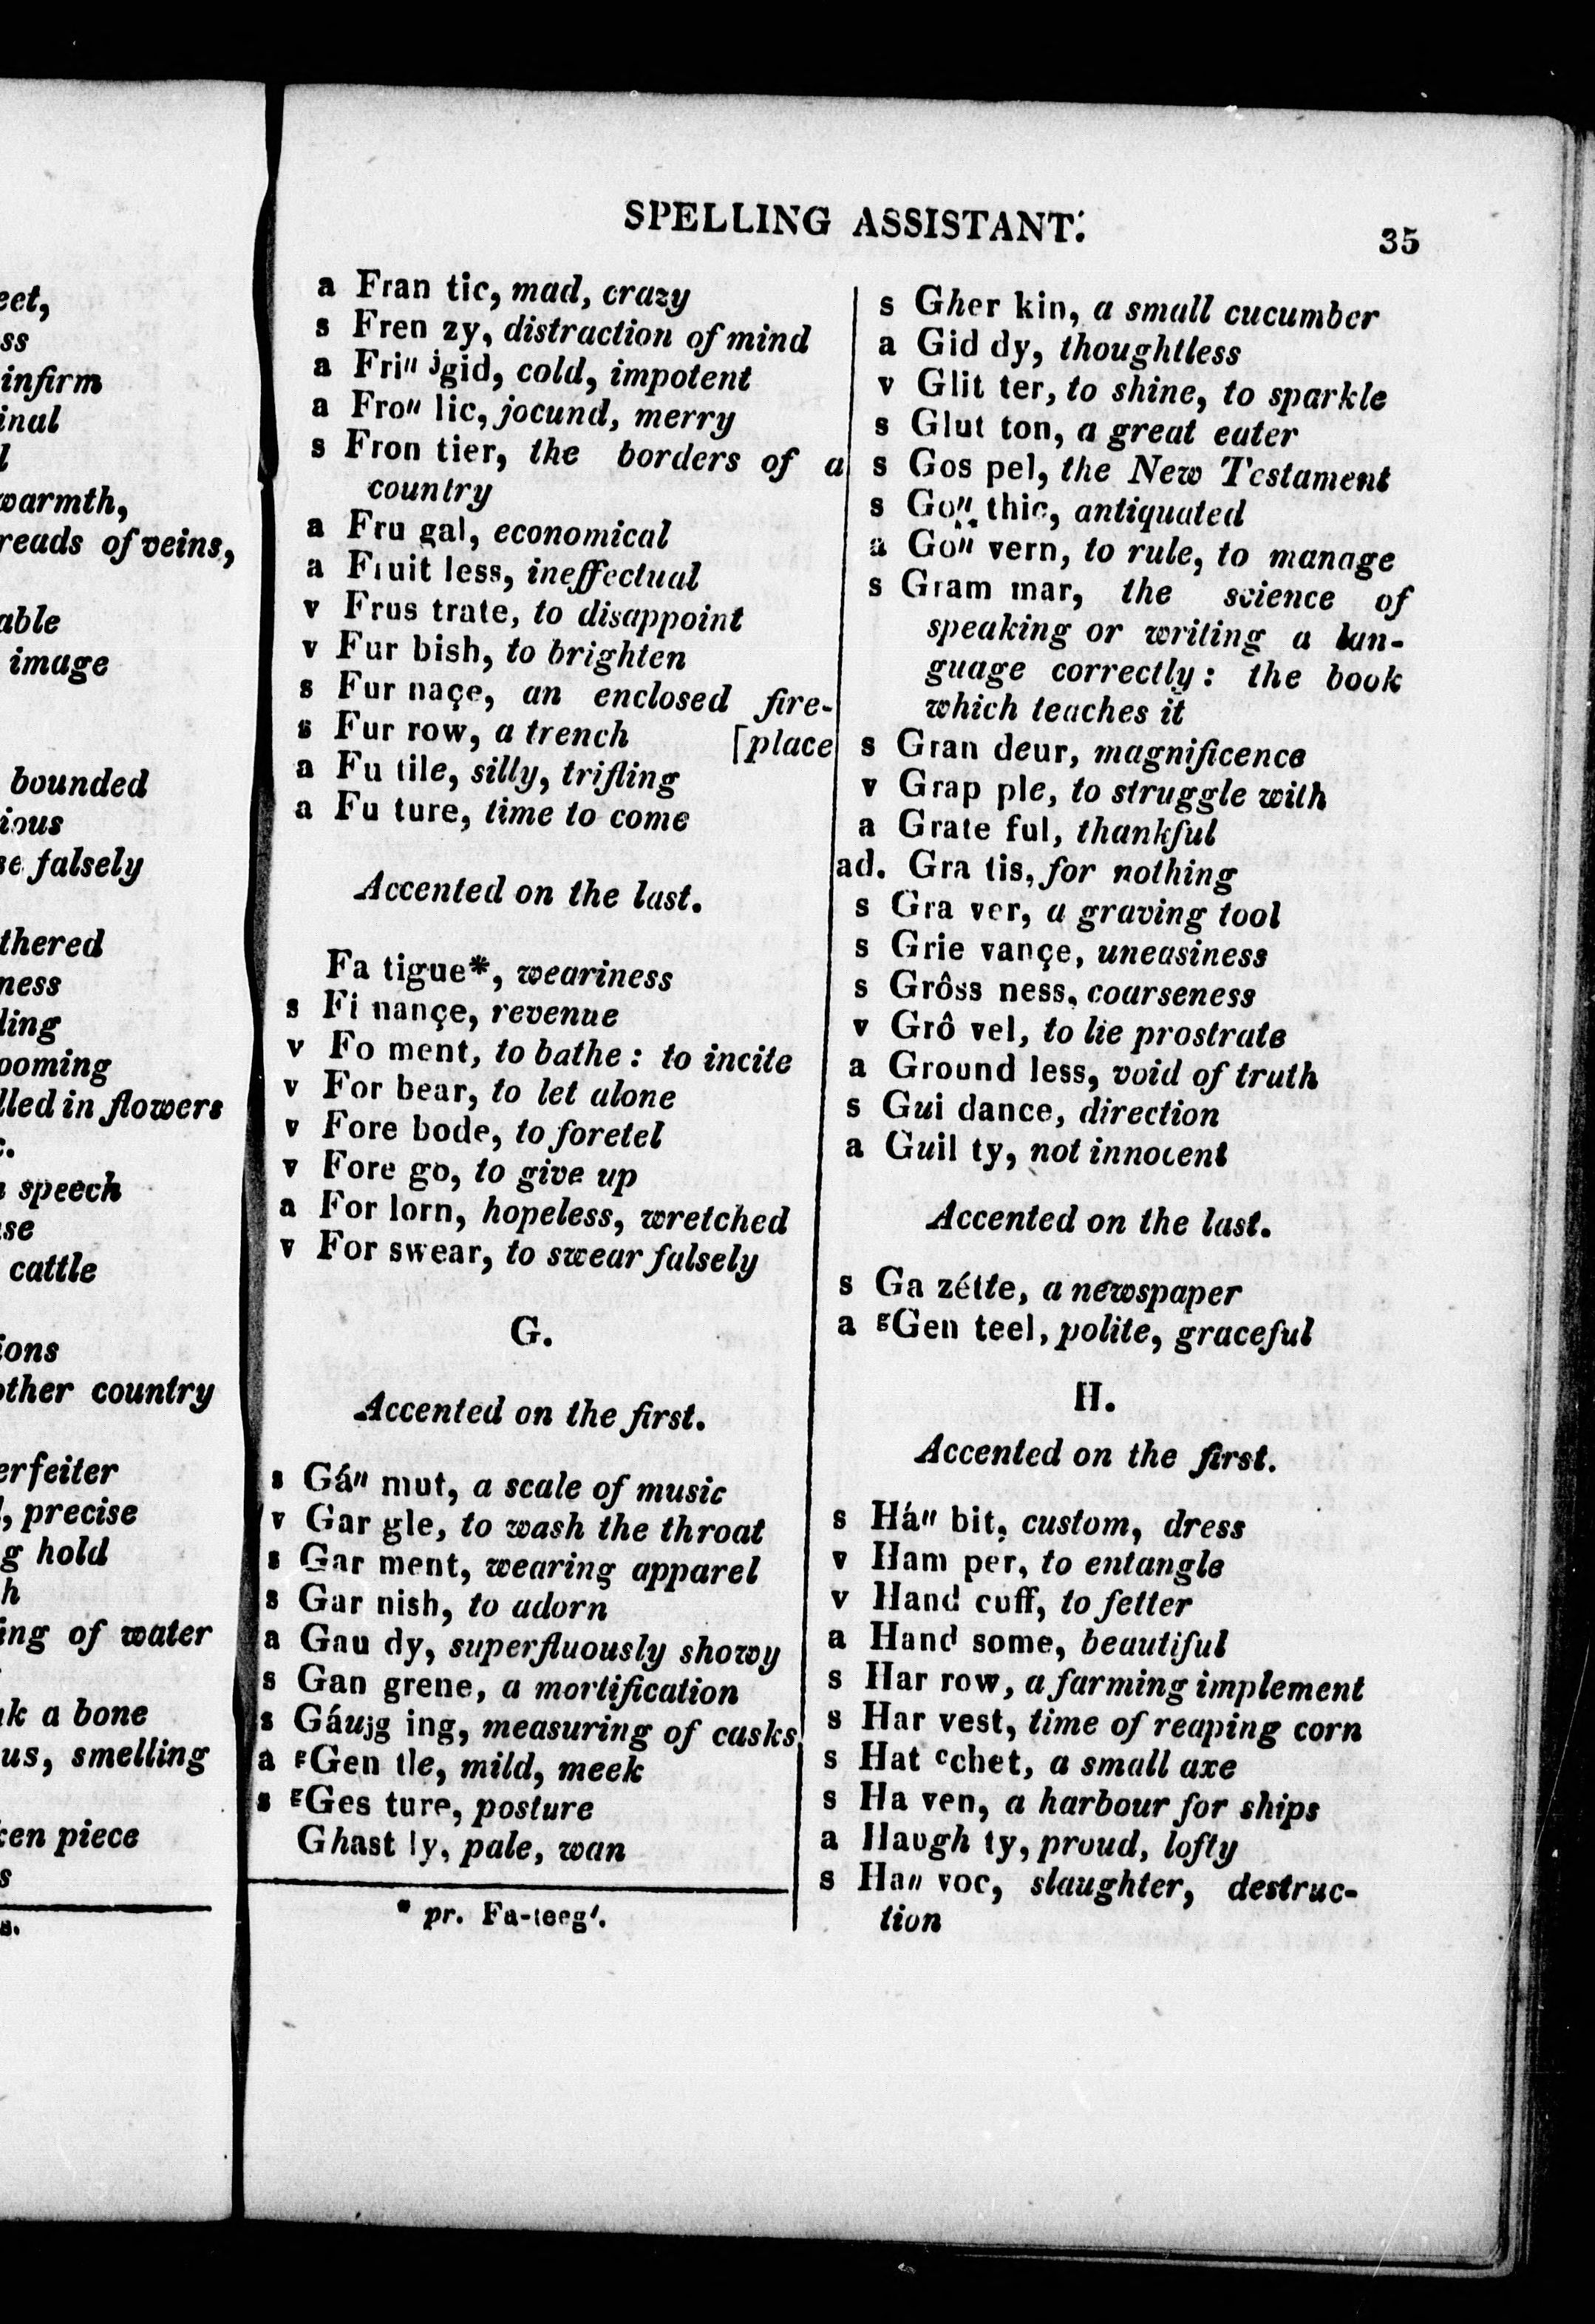 eet,
ss
infirm
inal
l
warmth,
reads of veins,
able
image
bounded
ious
se falsely
thered
ness
ling
ooming
lled in flowers
c.
speech
se
cattle
ions
other country
erfeiter
, precise
g hold
h
ing of water
k a bone
us, smelling
ken piece
s
SPELLING ASSISTANT.
35
a Fran tic, mad, crazy
s Fren zy, distraction of mind
a Fri" jgid, cold, impotent
a Fro" lic, jocund, merry
s Fron tier, the borders of a
country
a Fru gal, economical
a Fruit less, ineffectual
v Frus trate, to disappoint
v Fur bish, to brighten
s Fur naçe, an enclosed fire-
s Fur row, a trench [place
a Fu tile, silly, trifling
a Fu ture, time to come
Accented on the last.
Fa tigue*, weariness
s Fi nançe, revenue
v Fo ment, to bathe: to incite
v For bear, to let alone
v Fore bode, to foretel
v Fore go, to give up
a For lorn, hopeless, wretched
v For swear, to swear falsely
G.
Accented on the first.
s Gá" mut, a scale of music
v Gar gle, to wash the throat
s Gar ment, wearing apparel
s Gar nish, to adorn
a Gau dy, superfluously showy
s Gan grene, a mortification
s Gáujg ing, measuring of casks
a gGen tle, mild, meek
s gGes ture, posture
Ghast ly, pale, wan
* pr. Fa-teeg'.
s Gher kin, a small cucumber
a Gid dy, thoughtless
v Glit ter, to shine, to sparkle
s Glut ton, a great eater
s Gos pel, the New Testament
s Go" thic, antiquated
a Go" vern, to rule, to manage
s Gram mar, the science of
speaking or writing a lan-
guage correctly: the book
which teaches it
s Gran deur, magnificence
v Grap ple, to struggle with
a Grate ful, thankful
ad. Gra tis, for nothing
s Gra ver, a graving tool
s Grie vançe, uneasiness
s Grôss ness, coarseness
v Grô vel, to lie prostrate
a Ground less, void of truth
s Gui dance, direction
a Guil ty, not innocent
Accented on the last.
s Ga zétte, a newspaper
a gGen teel, polite, graceful
H.
Accented on the first.
s Há" bit, custom, dress
v Ham per, to entangle
v Hand cuff, to fetter
a Hand some, beautiful
s Har row, a farming implement
s Har vest, time of reaping corn
s Hat cchet, a small axe
s Ha ven, a harbour for ships
a Haugh ty, proud, lofty
s Ha" voc, slaughter, destruc-
tion